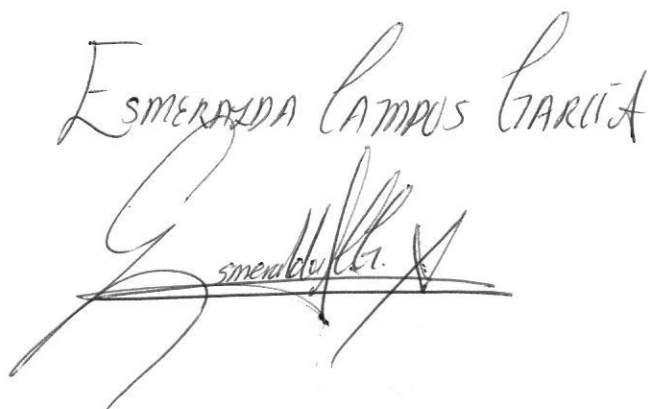 ESMERALDA CAMPOS GARCÍA
Esmeralda C.G.